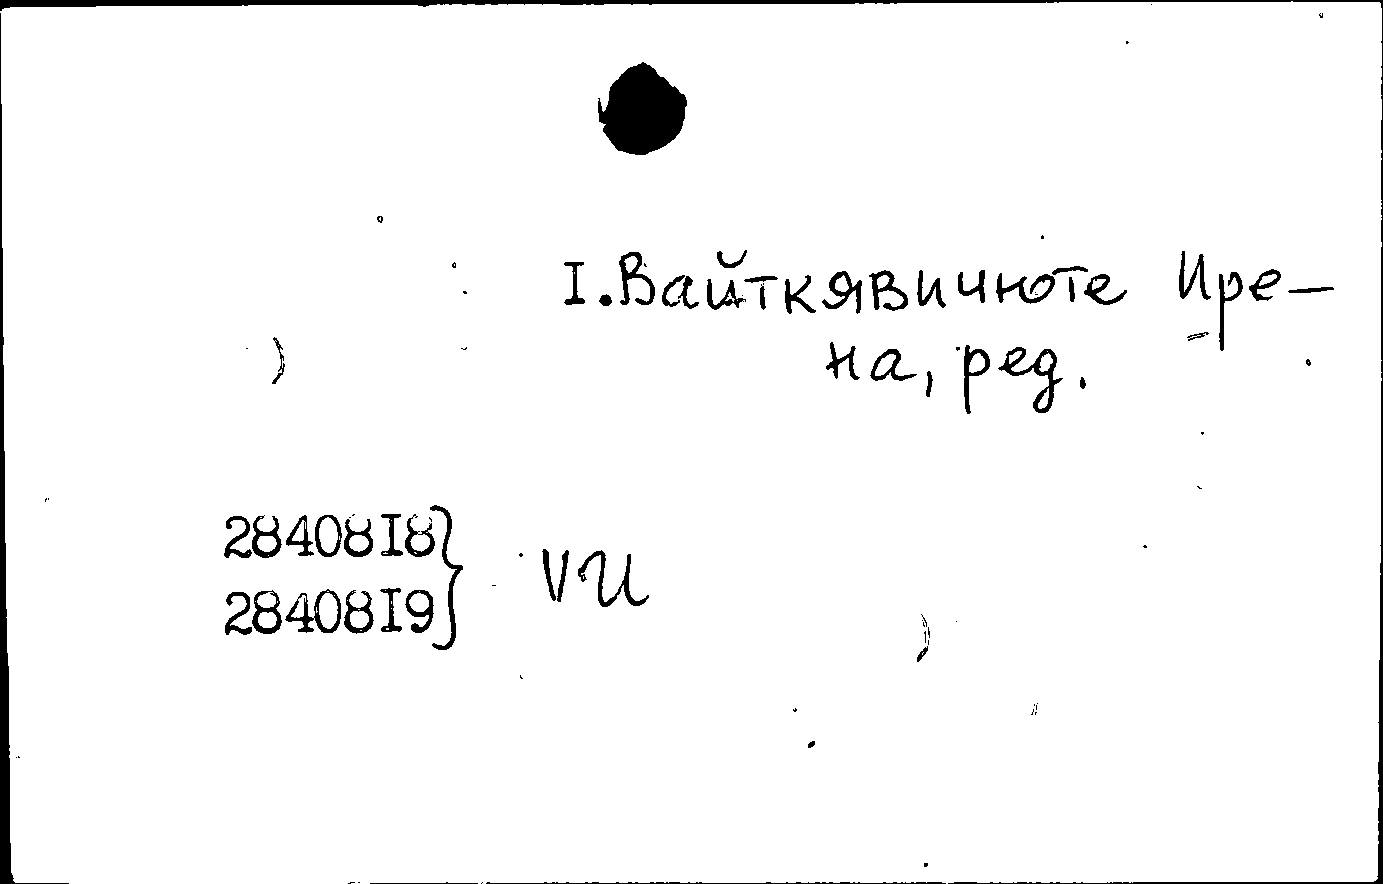 I.Вайткявичюте Ире-
на, ред.
28408I8
28408I9
VИ